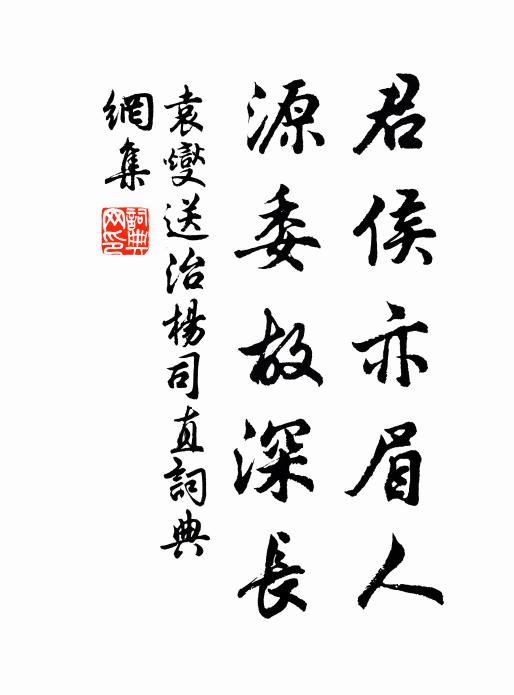 君侯亦眉人
源委故深長
袁燮送治楊司直詞典
網集
詞典
网印